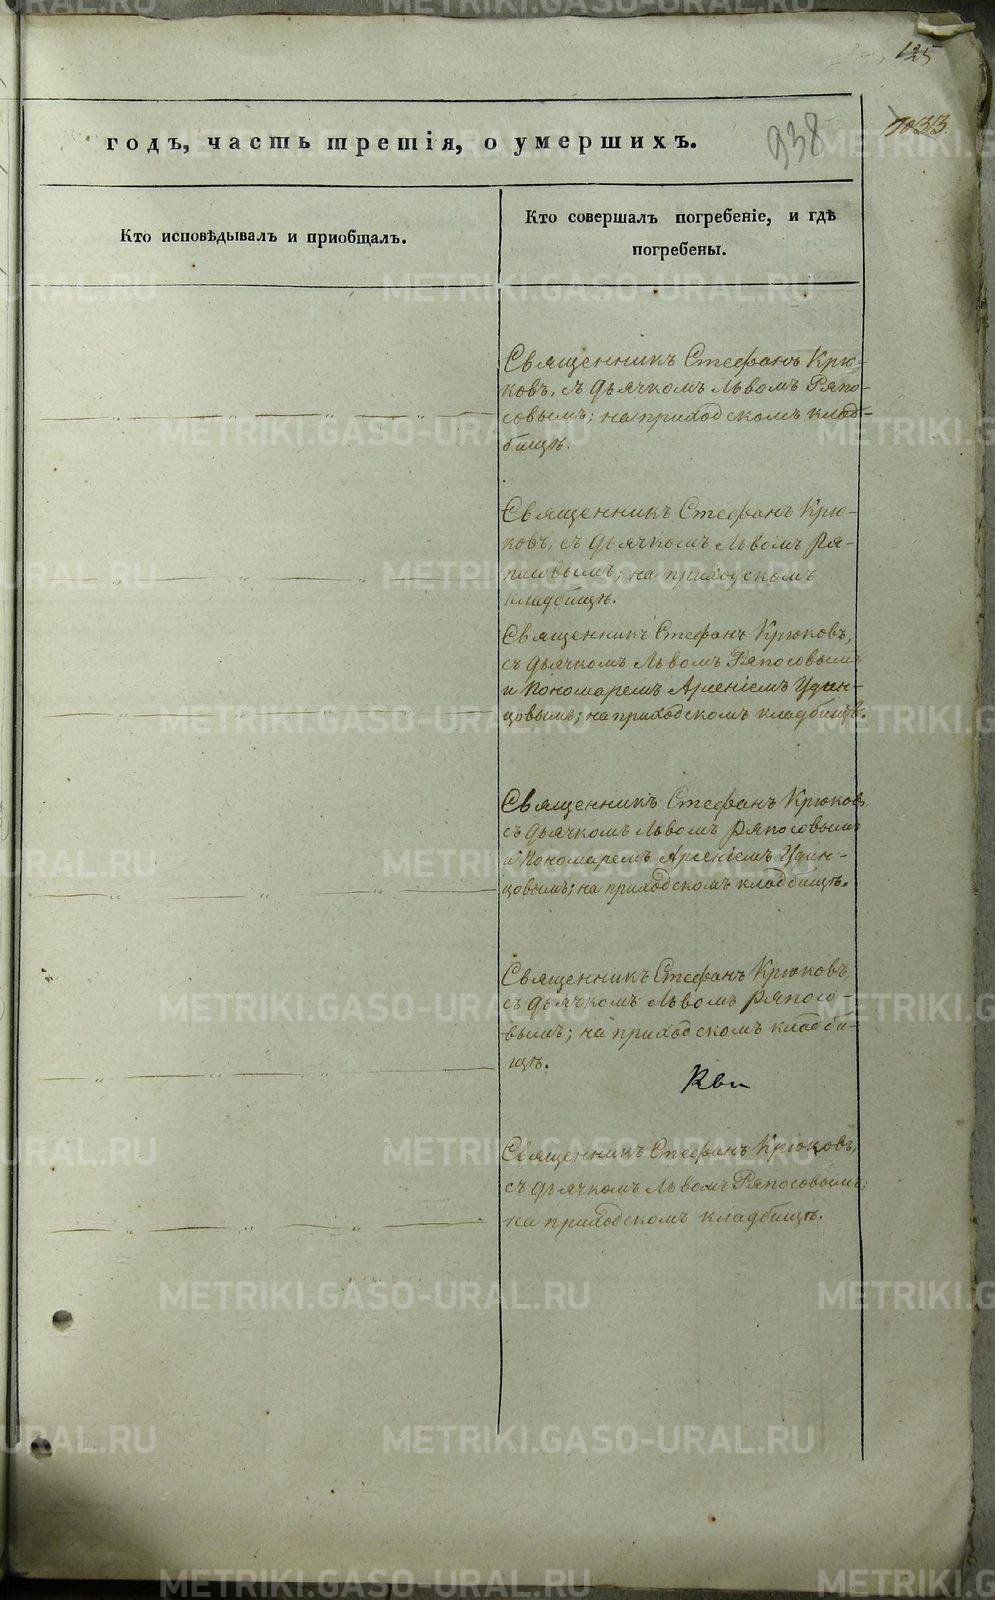 125
1033
938
годъ, часть третія, о умершихъ.
Кто исповѣдывалъ и пріобщалъ.
Кто совершалъ погребеніе, и гдѣ
погребены.
Священникъ Стефанъ Крю-
ковъ, съ дьячкомъ Львомъ Ряпо-
совымъ; на приходскомъ клад-
бищѣ.
Священникъ Стефанъ Крю-
ковъ, съ дьячкомъ Львомъ Ря-
посовымъ; на приходскомъ
кладбищѣ.
Священникъ Стефанъ Крюковъ,
съ дьячкомъ Львомъ Ряпосовымъ
и Пономаремъ Арсеніемъ Удин-
цовымъ; на приходскомъ кладбищѣ.
Священникъ Стефанъ Крюковъ,
съ дьячкомъ Львомъ Ряпосовымъ
и Пономаремъ Арсеніемъ Удин-
цовымъ; на приходскомъ кладбищѣ.
Священникъ Стефанъ Крюковъ,
съ дьячкомъ Львомъ Ряпосо-
вымъ; на приходскомъ кладби-
щѣ.
Священникъ Стефанъ Крюковъ,
съ дьячкомъ Львомъ Ряпосовымъ;
на приходскомъ кладбищѣ.
METRIKI.GASO-URAL.RU